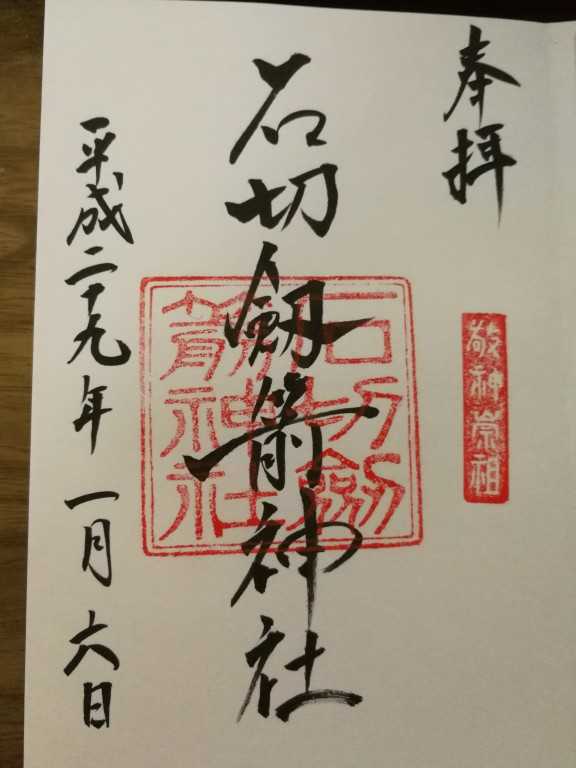 奉拝
敬神崇祖
石切劔箭神社
石切劔
箭神社
平成二十九年一月六日